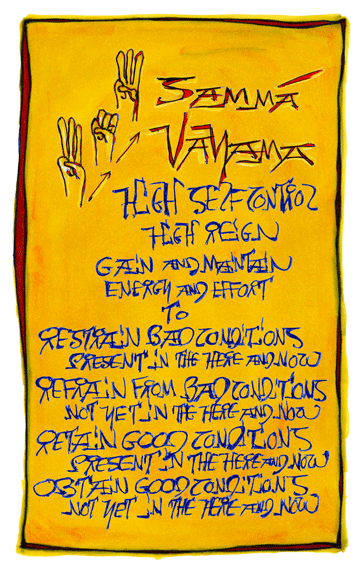 SAMMÁ
VAYAMA
HIGH SELF CONTROL
HIGH REIGN
GAIN AND MAINTAIN
ENERGY AND EFFORT
TO
RESTRAIN BAD CONDITIONS
PRESENT IN THE HERE AND NOW
REFRAIN FROM BAD CONDITIONS
NOT YET IN THE HERE AND NOW
RETAIN GOOD CONDITIONS
PRESENT IN THE HERE AND NOW
OBTAIN GOOD CONDITIONS
NOT YET IN THE HERE AND NOW